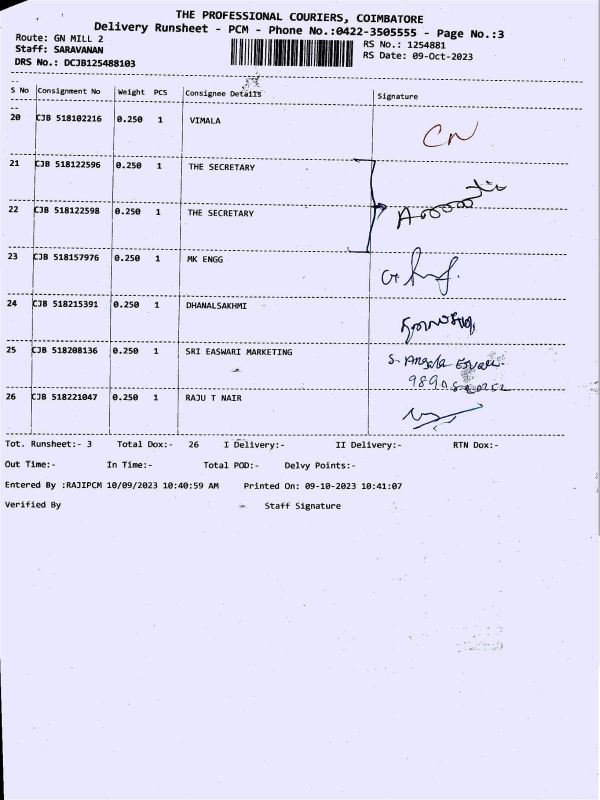 THE PROFESSIONAL COURIERS, COIMBATORE
Delivery Runsheet - PCM - Phone No.:0422-3505555 - Page No.:3
Route: GN MILL 2
RS No.: 1254881
Staff: SARAVANAN
RS Date: 09-Oct-2023
DRS No.: DCJB125488103
S No Consignment No Weight PCS Consignee Details Signature
20 CJB 518102216 0.250 1 VIMALA CN
21 CJB 518122596 0.250 1 THE SECRETARY
22 CJB 518122598 0.250 1 THE SECRETARY
23 CJB 518157976 0.250 1 MK ENGG
24 CJB 518215391 0.250 1 DHANALSAKHMI
25 CJB 518208136 0.250 1 SRI EASWARI MARKETING S-
26 CJB 518221047 0.250 1 RAJU T NAIR
Tot. Runsheet:- 3 Total Dox:- 26 I Delivery:- II Delivery:- RTN Dox:-
Out Time:- In Time:- Total POD:- Delvy Points:-
Entered By :RAJIPCM 10/09/2023 10:40:59 AM Printed On: 09-10-2023 10:41:07
Verified By Staff Signature